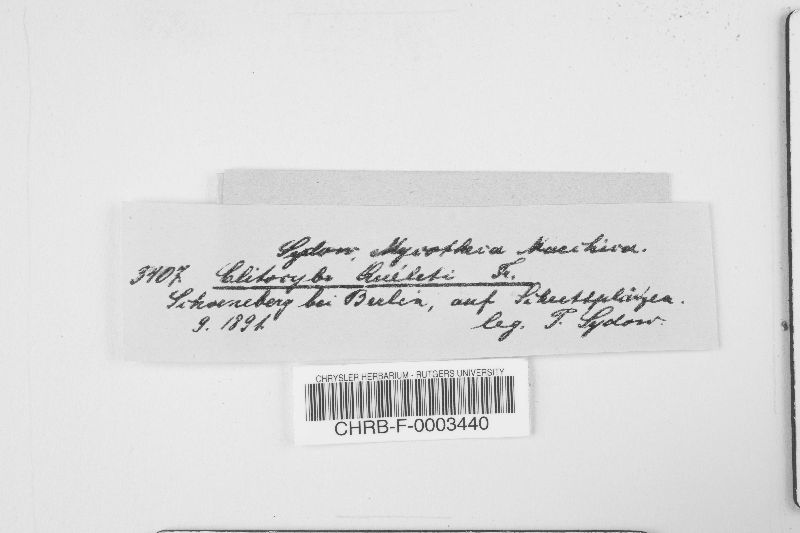 Sydow, Mycotheca Marchica.
3407. Clitocybe Queleti Fr.
Schoeneberg bei Berlin, auf Schuttplätzen.
9. 1891. leg. P. Sydow.
CHRYSLER HERBARIUM - RUTGERS UNIVERSITY
CHRB-F-0003440